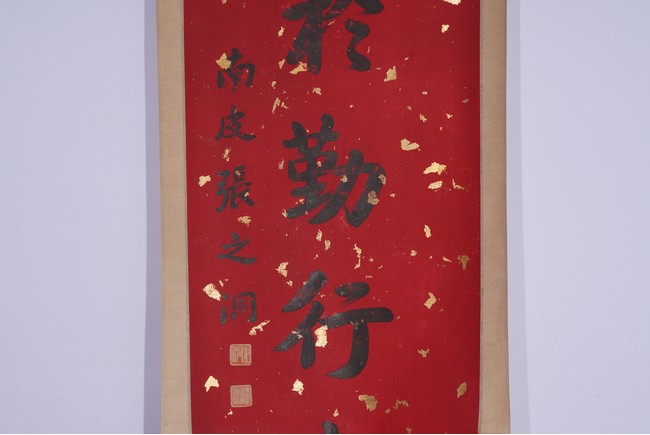 於勤行
南皮張之洞